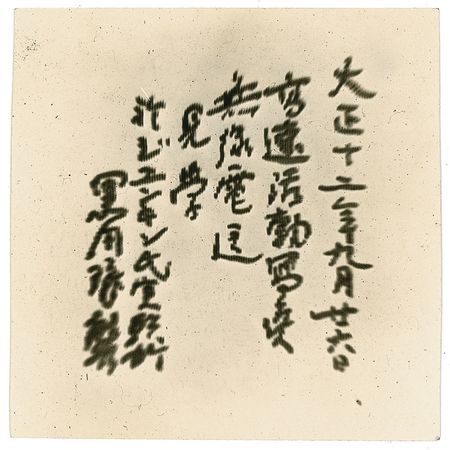 大正十二年九月廿六日
高速活動寫真
無線電送
見学
於ジエンキン氏実験所